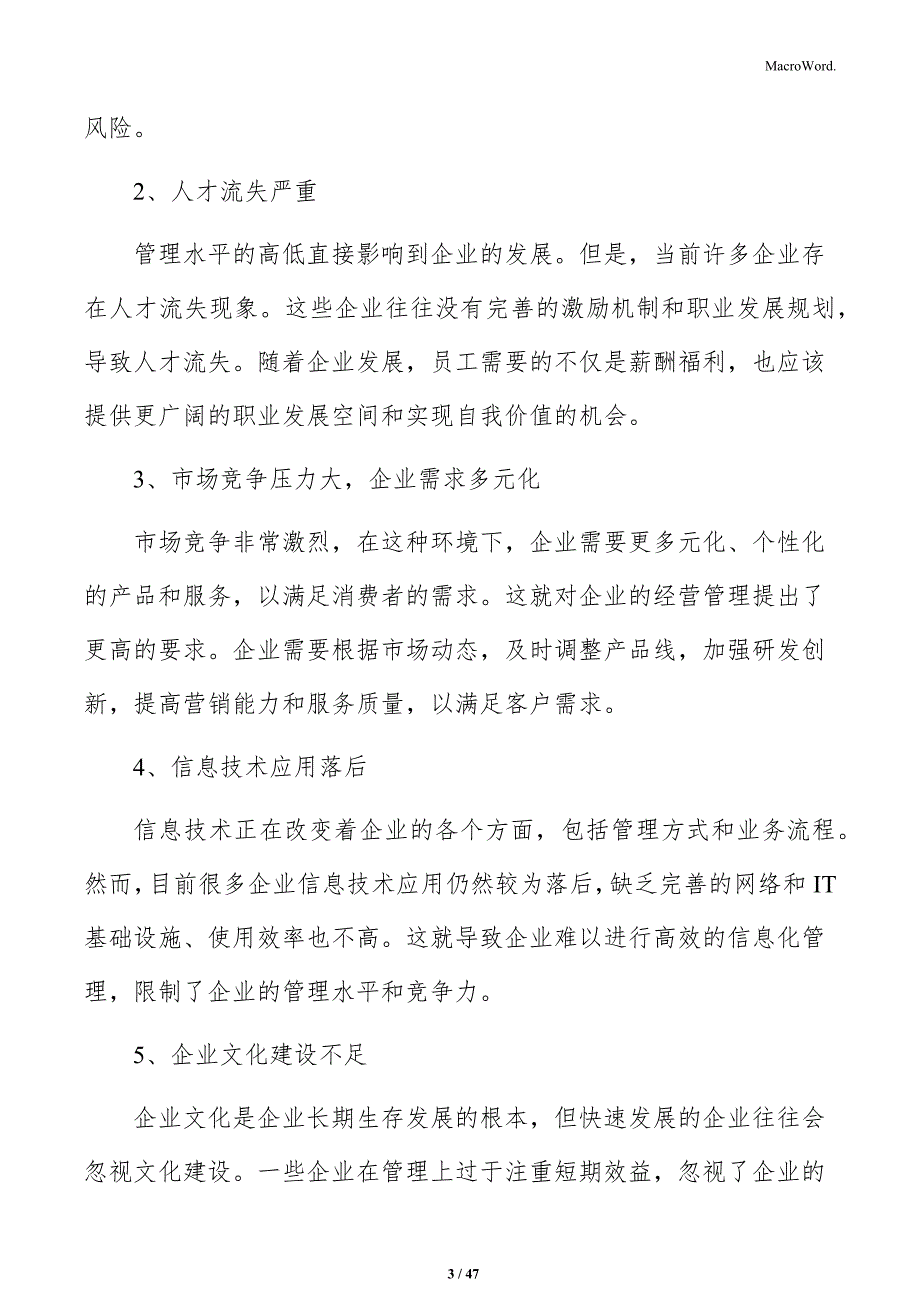 MacroWord.
风险。
2、人才流失严重
管理水平的高低直接影响到企业的发展。但是，当前许多企业存
在人才流失现象。这些企业往往没有完善的激励机制和职业发展规划，
导致人才流失。随着企业发展，员工需要的不仅是薪酬福利，也应该
提供更广阔的职业发展空间和实现自我价值的机会。
3、市场竞争压力大，企业需求多元化
市场竞争非常激烈，在这种环境下，企业需要更多元化、个性化
的产品和服务，以满足消费者的需求。这就对企业的经营管理提出了
更高的要求。企业需要根据市场动态，及时调整产品线，加强研发创
新，提高营销能力和服务质量，以满足客户需求。
4、信息技术应用落后
信息技术正在改变着企业的各个方面，包括管理方式和业务流程。
然而，目前很多企业信息技术应用仍然较为落后，缺乏完善的网络和 IT
基础设施、使用效率也不高。这就导致企业难以进行高效的信息化管
理，限制了企业的管理水平和竞争力。
5、企业文化建设不足
企业文化是企业长期生存发展的根本，但快速发展的企业往往会
忽视文化建设。一些企业在管理上过于注重短期效益，忽视了企业的
3 / 47